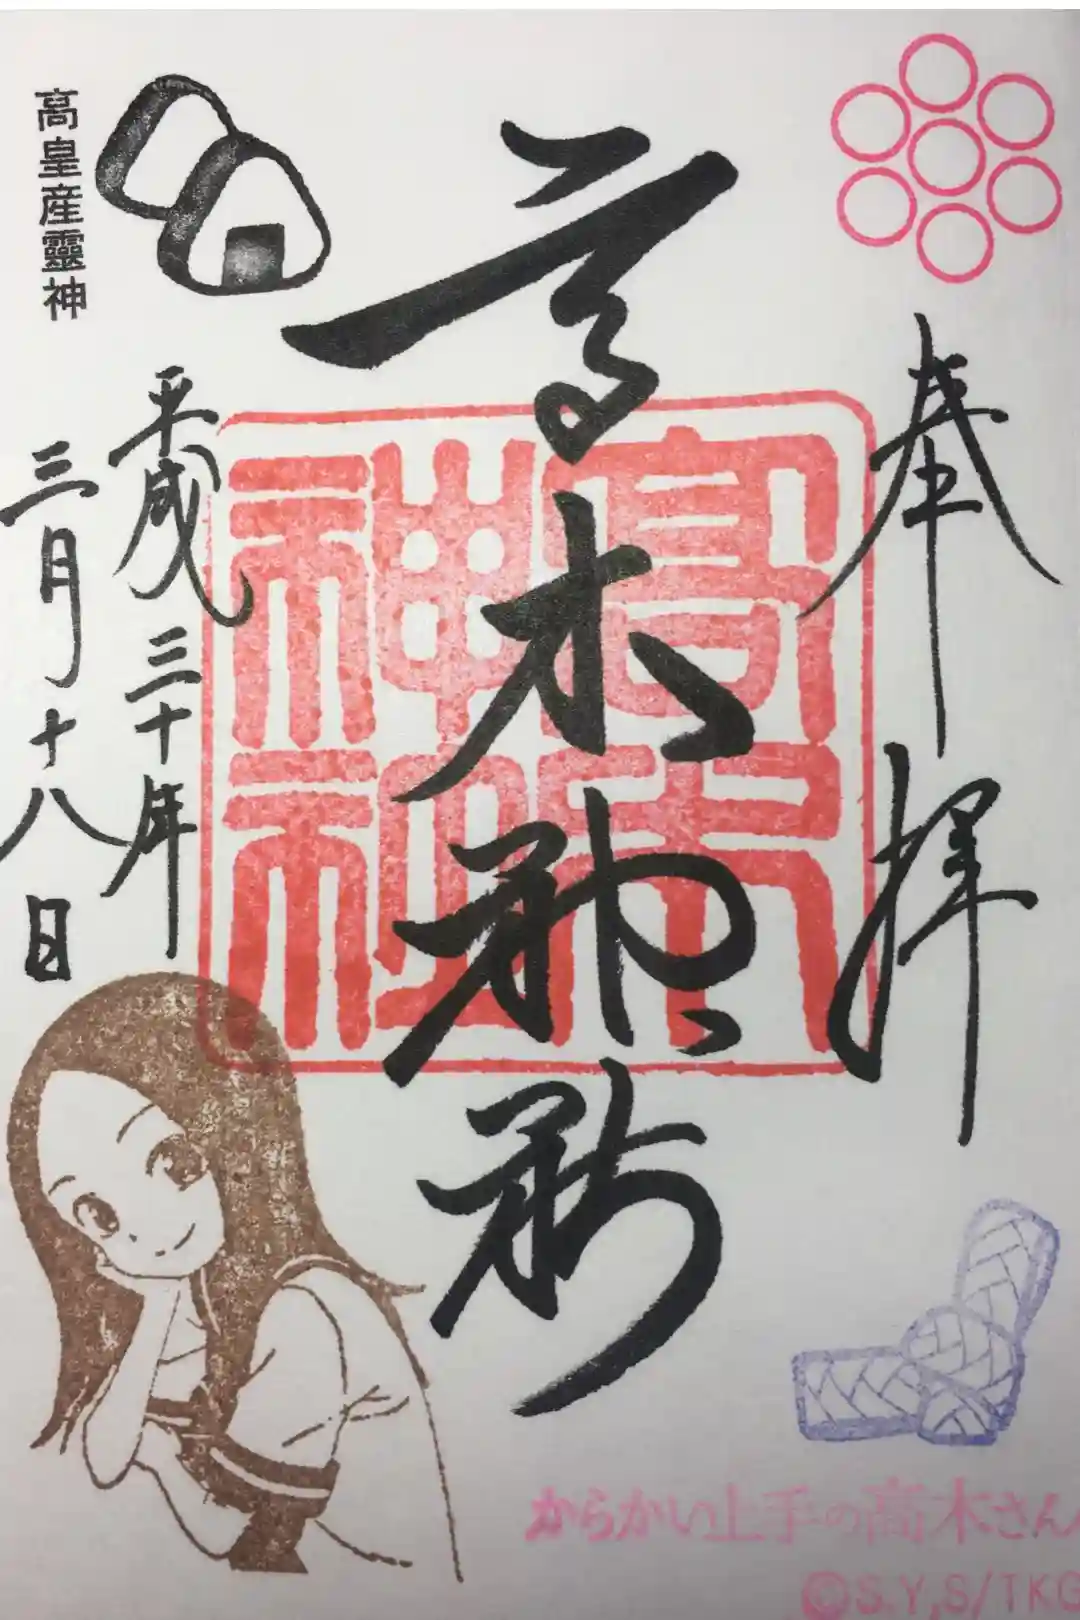 奉拝
高木神社
高木神社
高皇産靈神
平成三十年
三月十八日
からかい上手の高木さん
©S.Y,S/TKG